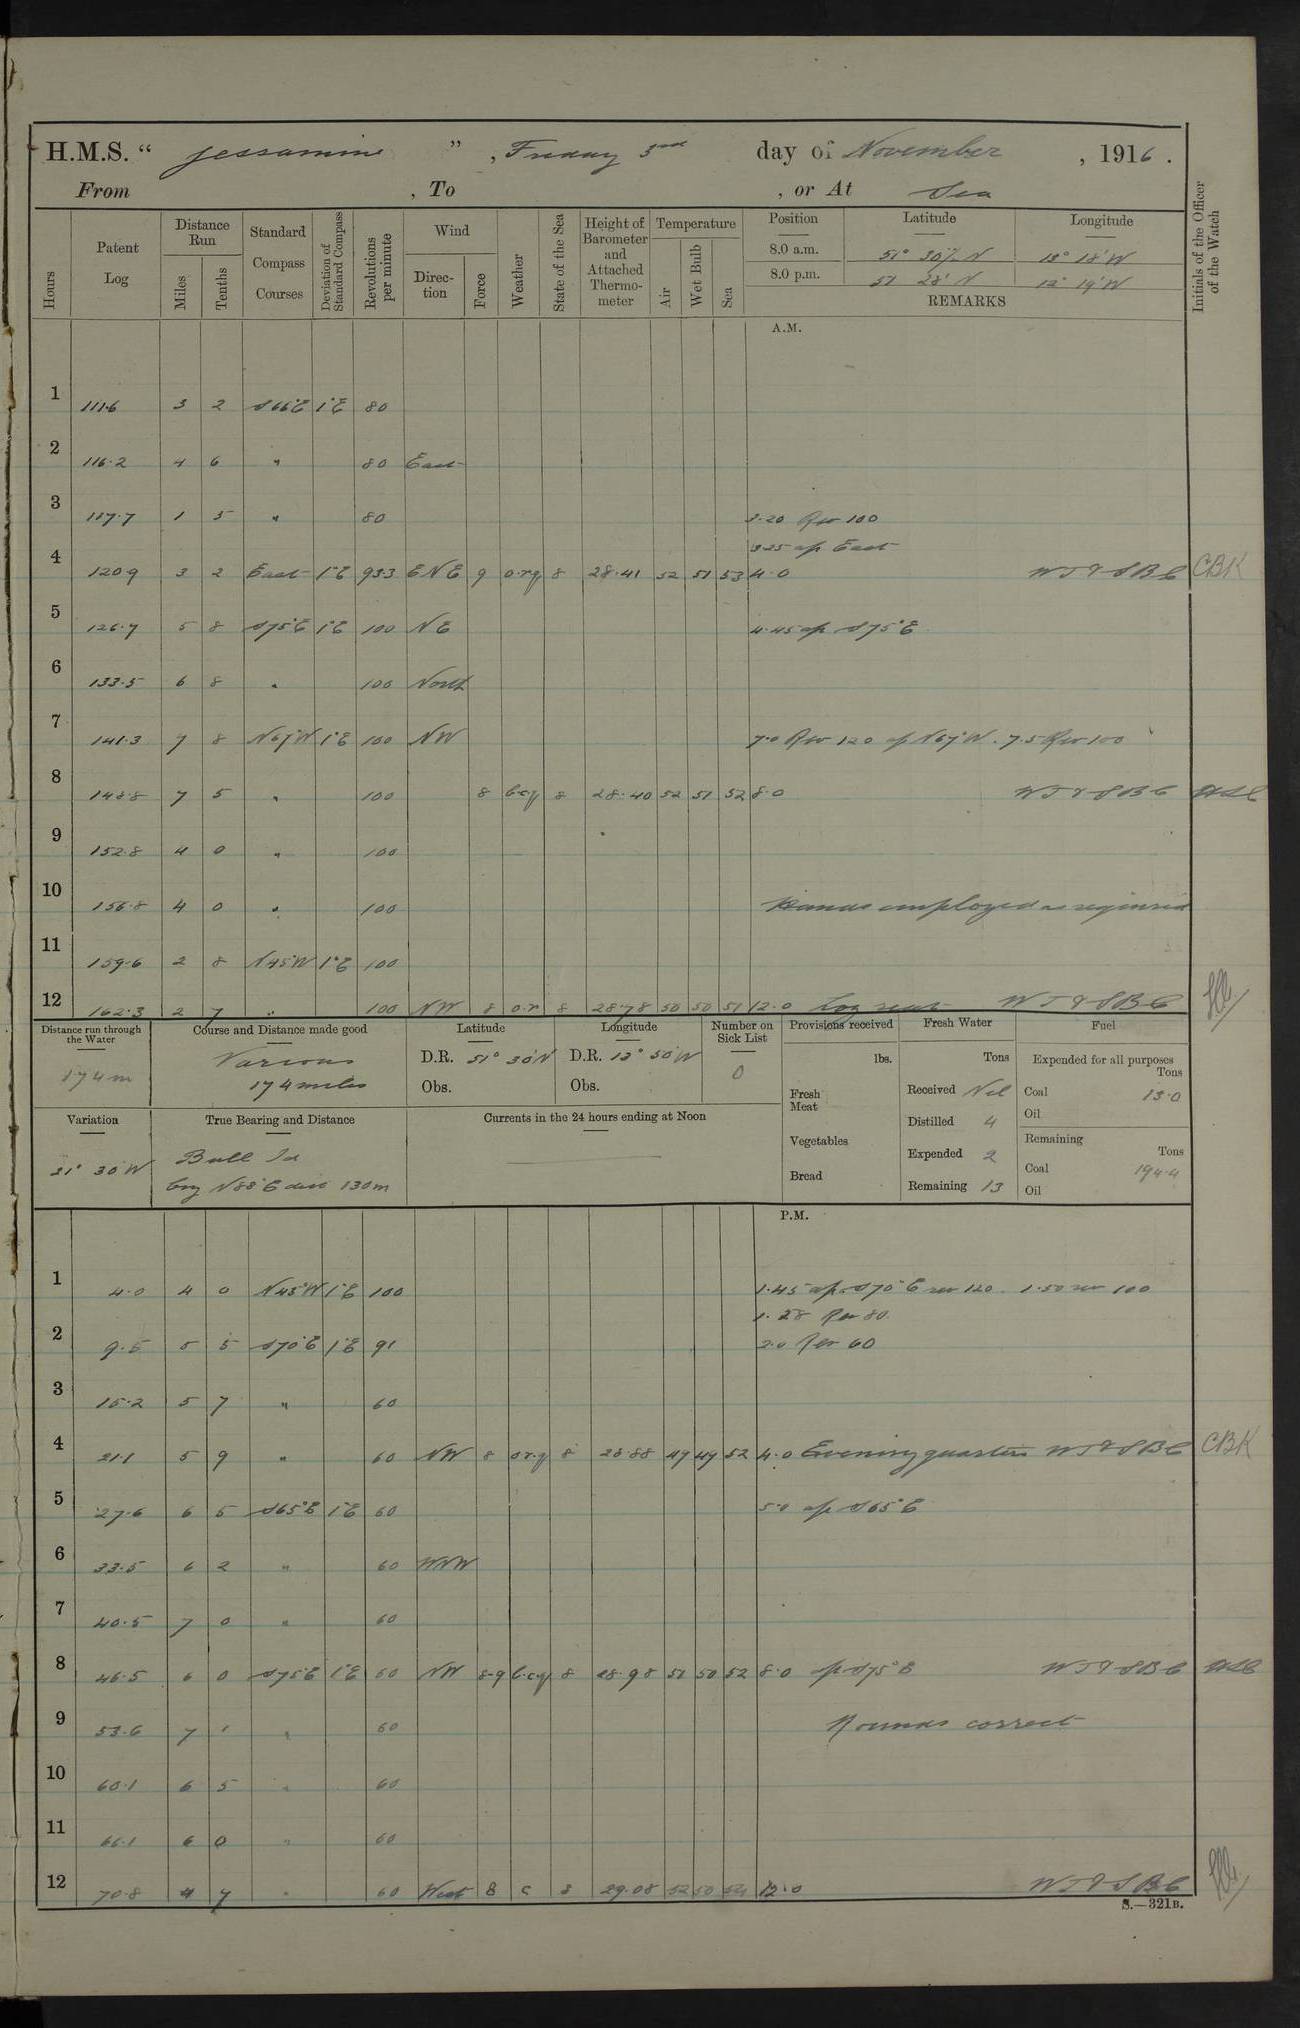 H.M.S. “ Jessamine ” , Friday 3rd day of November , 1916 .
From , To , or At Sea
Hours
Patent Log
Distance Run
Miles
Tenths
Standard Compass Courses
Deviation of Standard Compass
Revolutions per minute
Wind
Direc-tion
Force
Weather
State of the Sea
Height of Barometer and Attached Thermo-meter
Temperature
Air
Wet Bulb
Sea
Position Latitude Longitude
8.0 a.m. 51° 30½ N 13° 18' W
8.0 p.m. 51 28' N 12° 19' W
REMARKS
Initials of the Officer of the Watch
A.M.
1 111.6 3 2 S66°E 1°E 80
2 116.2 4 6 " 80 East
3 117.7 1 5 " 80 3.20 Rev 100
3.25 a/c East
4 120.9 3 2 East 1°E 933 ENE 9 o.r.q 8 28.41 52 51 53 4.0 WT & SBC CBK
5 126.7 5 8 S75°E 1°E 100 NE 4.45 a/c S75°E
6 133.5 6 8 " 100 North
7 141.3 7 8 N67°W 1°E 100 NW 7.0 Rev 120 a/c N67°W . 7.5 Rev 100
8 148.8 7 5 " 100 8 b.c.q 8 28.40 52 51 52 8.0 WT & SBC
9 152.8 4 0 " 100
10 156.8 4 0 " 100 Hands employed as required
11 159.6 2 8 N45°W 1°E 100
12 162.3 2 7 " 100 NW 8 o.r. 8 28.78 50 50 51 12.0 Log reset WT & SBC
Distance run through the Water
174m
Course and Distance made good
Various
174 miles
Latitude
D.R. 51° 30'N
Obs.
Longitude
D.R. 13° 50'W
Obs.
Number on Sick List
0
Provisions received
lbs.
Fresh Meat
Vegetables
Bread
Fresh Water
Tons
Received Nil
Distilled 4
Expended 2
Remaining 13
Fuel
Expended for all purposes
Tons
Coal 13.0
Oil
Remaining
Tons
Coal 194.4
Oil
Variation
21° 30'W
True Bearing and Distance
Bull Id
brg N88°E dist 130m
Currents in the 24 hours ending at Noon
P.M.
1 4.0 4 0 N45°W 1°E 100 1.45 a/c S70°E rev 120 . 1.50 rev 100
1.28 Rev 80
2 9.5 5 5 S70°E 1°E 91 2.0 Rev 60
3 15.2 5 7 " 60
4 21.1 5 9 " 60 NW 8 o.r.q 8 28.88 49 49 52 4.0 Evening quarters WT & SBC CBK
5 27.6 6 5 S65°E 1°E 60 5.0 a/c S65°E
6 33.5 6 2 " 60 WNW
7 40.5 7 0 " 60
8 46.5 6 0 S75°E 1°E 60 NW 8-9 b.c.q 8 28.98 51 50 52 8.0 a/c S75°E WT & SBC
9 53.6 7 1 " 60 Rounds correct
10 60.1 6 5 " 60
11 66.1 6 0 " 60
12 70.8 4 7 " 60 West 8 c 8 29.08 52 50 52 12.0 WT & SBC
S.—321B.